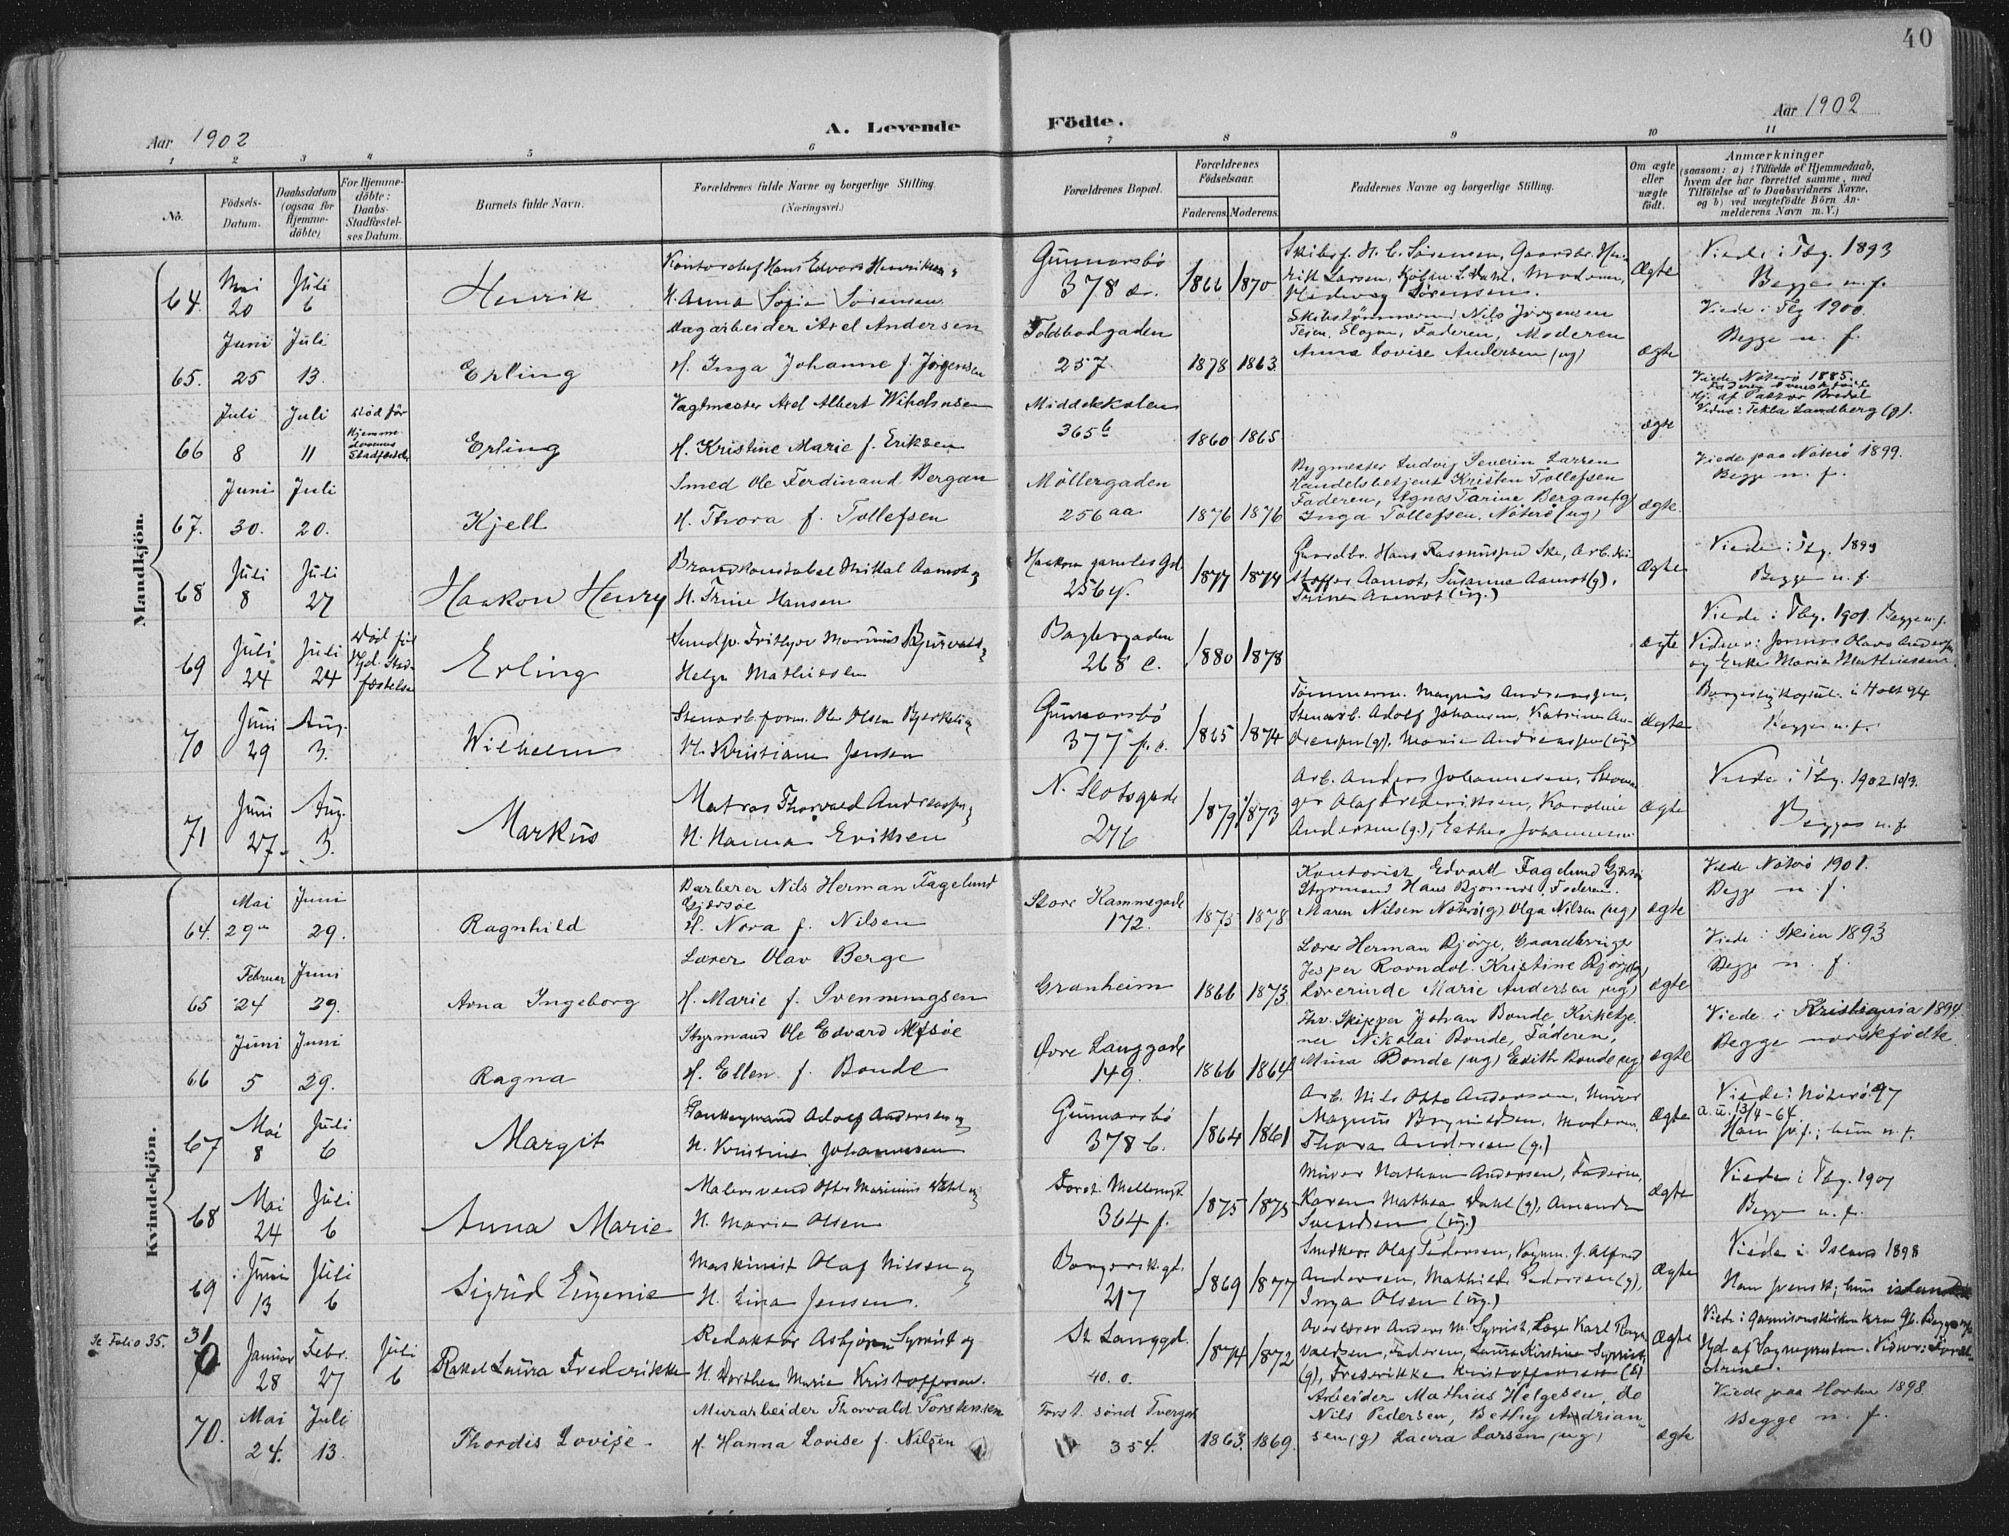 40
Aar 1902
A. Levende
Födte.
Aar 1902
1 2 3 4 5 6 7 8 9 10 11
No.
Födsels-
Datum.
Daabsdatum
(ogsaa for
Hjemme-
döbte)
For Hjemme-
döbte:
Daabs-
Stadfæstel-
ses Datum.
Barnets fulde Navn.
Forældrenes fulde Navne og borgerlige Stilling.
(Næringsvei.)
Forældrenes Bopæl.
Forældrenes
Födselsaar.
Faderens. Moderens.
Faddernes Navne og Stilling.
Om ægte
eller
uægte
födt.
Anmærkninger
(saasom: a) i Tilfælde af Hjemmedaab,
hvem der har forrettet samme, med
Tilföielse af to Daabsvidners Navne,
og b) ved uægtefödte Börn An-
melderens Navn m. V.)
Mandkjön.
64. Mai 20 Juli 6
Henrik
Kontorchef Hans Edvard Henriksen
H. Anna Sofie Sörensen
Gunnarsbö
378
1866 1870
Skibsf. H. C. Sörensen, Gaardbr. Hen-
rik Larsen, Moderen,
Hedevig Sörensen.
Ægte
Viede i Tbg. 1893
Begge n. f.
65. Juni 25 Juli 13.
Erling
Dagarbeider Axel Andersen
H. Inga Johanne f. Jörgensen
Toldbodgaden
257.
1878 1863
Skibstömmerm. Nils Jörgensen
Teien, Slagen, Faderen, Moderen
Anna Lovise Andersen (ug)
ægte
Viede i Tbg 1900.
Begge n. f.
66 Juli 8 Juli 11
död för
Hjemme
daabens
Stadfæstelse
Erling
Vagtmester Axel Albert
H. Kristine Marie f. Eriksen
365b
1860 1865
ægte
Viede Nöterö 1885.
Hj. af Pastor Bredal
Vidne: Tekla Sandberg (g).
67. Juni 30. Juli 20.
Kjell
Smed Ole Ferdinand Bergan
H. Thora f. Tollefsen
Möllergaden
256aa
1876 1876
Bygmester Ludvig Severin Larsen
Handelsbetjent Kristen Tollefsen
Faderen, Agnes Tarine Bergan (g)
Inga Tollefsen. Nöterö (ug)
ægte.
Viede paa Nöterö 1899.
Begge n. f.
68 Juli 8 Juli 27
Haakon Henry
Brandkonstabel Mikal Aamot
H. Trine Hansen
Haakon gamles Gd
256y.
1877 1874
Gaardbr. Hans Rasmussen Ske, Arb. Kri-
stoffer Aamot, Susanne Aamot (g).
Trine Aamot (ug.)
Ægte
Viede i Tbg. 1899
Begge n. f.
69 Juli 24 Juli 24
Död för
Hjd. Stad-
fæstelse
Erling
Helga Mathiesen
Baglergaden
268 c.
1880 1878
ægte
Viede i Tbg. 1901 Begge n. f.
og Enke Maria Mathiesen
70 Juni 29 Aug. 3.
Wilhelm
Stenarb. form. Ole Olsen
H. Kristiane Jensen
Gunnarsbö
377
1865 1874
Tömmerm. Magnus Andreassen,
Stenarb. Adolf Johansen, Katrine An-
dreassen (g). Marie Andreassen (ug)
Ægte
i Holt 94
Begge n. f.
71 Juni 27. Aug. 3.
Markus
Matros Thorvald Andreassen
H. Hanna Eriksen
N. Slotsgade
276
1879 1873
Arb. Anders Johannesen,
Olaf Frederiksen, Karoline
Andersen (g.), Esther Johannesen
Ægte
Viede i Tbg. 1902
Begge n. f.
Kvindekjön.
64. Mai 29 Juni 29.
Ragnhild
Barberer Nils Herman Fagelund
Gjærsöe
H. Nora f. Nilsen
Store Kammegade
172.
1875 1878
Kontorist Edvard Fagelund Gjærsöe
Styrmand Hans Bjonnes, Faderen.
Maren Nilsen Nöterö (g) Olga Nilsen (ug)
ægte
Viede Nöterö 1901.
Begge n. f.
65 Februar 24 Juni 29.
Anna Ingeborg
Lærer Olav Berge
H. Marie f. Svennungsen
Granheim
1866 1873
Lærer Herman Bjørge, Gaardbruger
Jesper Ravndal. Kristine Bjørge (g)
Lærerinde Marie Andersen (ug)
ægte
Viede i Skien 1893
Begge n. f.
66 Juni 5 Juni 29.
Ragna
Styrmand Ole Edvard
H. Ellen f. Bonde
Övre Langgade
149.
1866 1864
Skipper Johan Bonde Kirketje-
ner Nikolai Bonde, Faderen,
Mina Bonde (ug) Edith Bonde (ug)
ægte
Viede i Kristiania 1894
Begge norskfödte
67 Mai 8 Juli 6
Margit
Adolf Andersen og
H. Kristine Johannesen
Gunnarsbö
378 b.
1864 1861
Arb. Nils Otto Andersen, Murer
Magnus Brynildsen, Moderen
Thora Andersen (g.)
Ægte
Viede i Nöterö 97
Han sv. f.; hun n. f.
68 Mai 24 Juli 6
Anna Marie
Malersvend Marinius Dahl og
H. Marie Olsen
364 f.
1875 1875
Murer Nathan Andersen, Faderen,
Karen Mathea Dahl (g), Amanda
Svendsen (ug.)
Ægte
Viede i Tbg. 1901
Begge n. f.
69 Juni 13 Juli 6
Sigrid Eugenie
Maskinist Olaf Nilsen og
H. Lina Jensen.
217
1869 1877
Snedker Olaf Pedersen, Alfred
Andersen, Mathilde Pedersen (g),
Inga Olsen (ug.)
Ægte
Viede i Island 1898
Han svensk; hun islandsk
Se Folio 35.
31 Januar 28 Febr. 27 Juli 6
Rakel Laura Frederikke
Redaktör Asbjörn Syrrist og
H. Dorthea Marie Kristoffersen.
St. Langgd.
40. o.
1874 1872
Overlærer Anders M. Syrrist, Læge Karl
Faderen, Laura Kirstine Syrrist
(g), Frederikke Kristoffersen (g)
Ægte
Viede i Garnisonskirken
Hjd. af Sognepresten. Vidner: Foræl-
drene.
70. Mai 24. Juli 13.
Thordis Lovise.
Murarbeider Thorvald Torstensen
H. Hanna Lovise f. Nilsen
354.
1863. 1869.
Arbeider Mathias Helgesen, do
Nils Pedersen, Bethy Andrian-
sen (g) Laura Larsen (ug)
ægte
Viede paa Horten 1898.
Begge n. f.